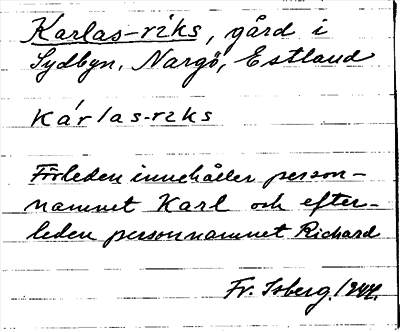 Karlas-riks, gård i
Sydbyn, Nargö, Estland
Kárlas-riks
Förleden innehåller person-
namnet Karl och efter-
leden personnamnet Richard
Fr. Isberg. 1944.